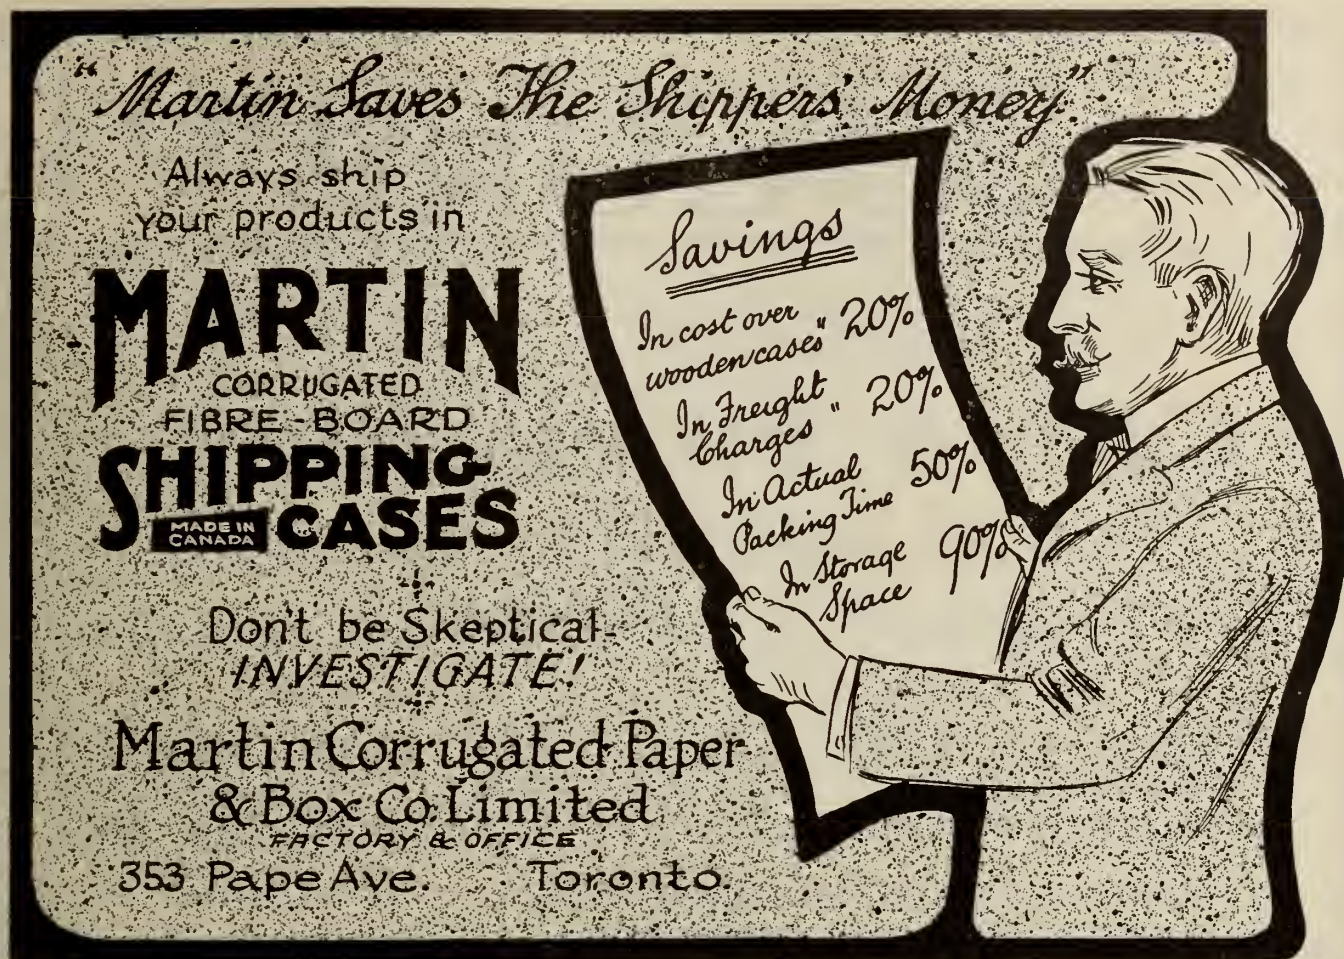 "Martin Saves The Shippers' Money"
Always ship
your products in
MARTIN
CORRUGATED
FIBRE-BOARD
SHIPPING
CASES
MADE IN
CANADA
Don't be Skeptical-
INVESTIGATE!
Martin Corrugated Paper
& Box Co. Limited
FACTORY & OFFICE
353 Pape Ave. Toronto.
Savings
In cost over
wooden cases " 20%
In Freight
Charges " 20%
In Actual
Packing Time 50%
In Storage
Space 90%